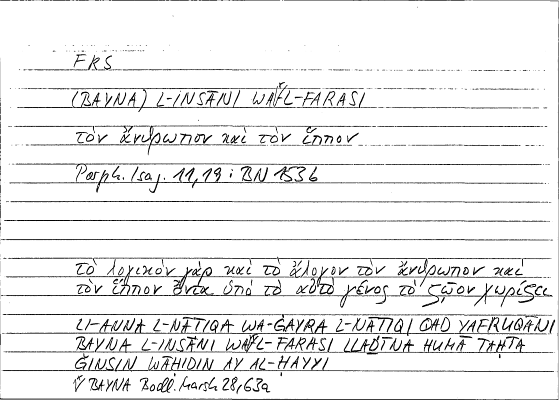 FRS
(BAYNA) L-INSĀNI WA⌜L-FARASI
τὸν ἄνθρωπον καὶ τὸν ἵππον
Porph. Isag. 11,19 : BN 153b
τὸ λογικὸν γὰρ καὶ τὸ ἄλογον τὸν ἄνθρωπον καὶ
τὸν ἵππον ὄντα ὑπὸ τὸ αὐτὸ γένος τὸ ζῷον χωρίζει
LI-ANNA L-NĀṬIQA WA-ĠAYRA L-NĀṬIQI QAD YAFRUQĀNI
BAYNA L-INSĀNI WA⌜L-FARASI LLAḎĪNA HUMĀ TAḤTA
ĞINSIN WĀḤIDIN AY AL-ḤAYYI
⌜ BAYNA Bodl. Marsh 28,63a